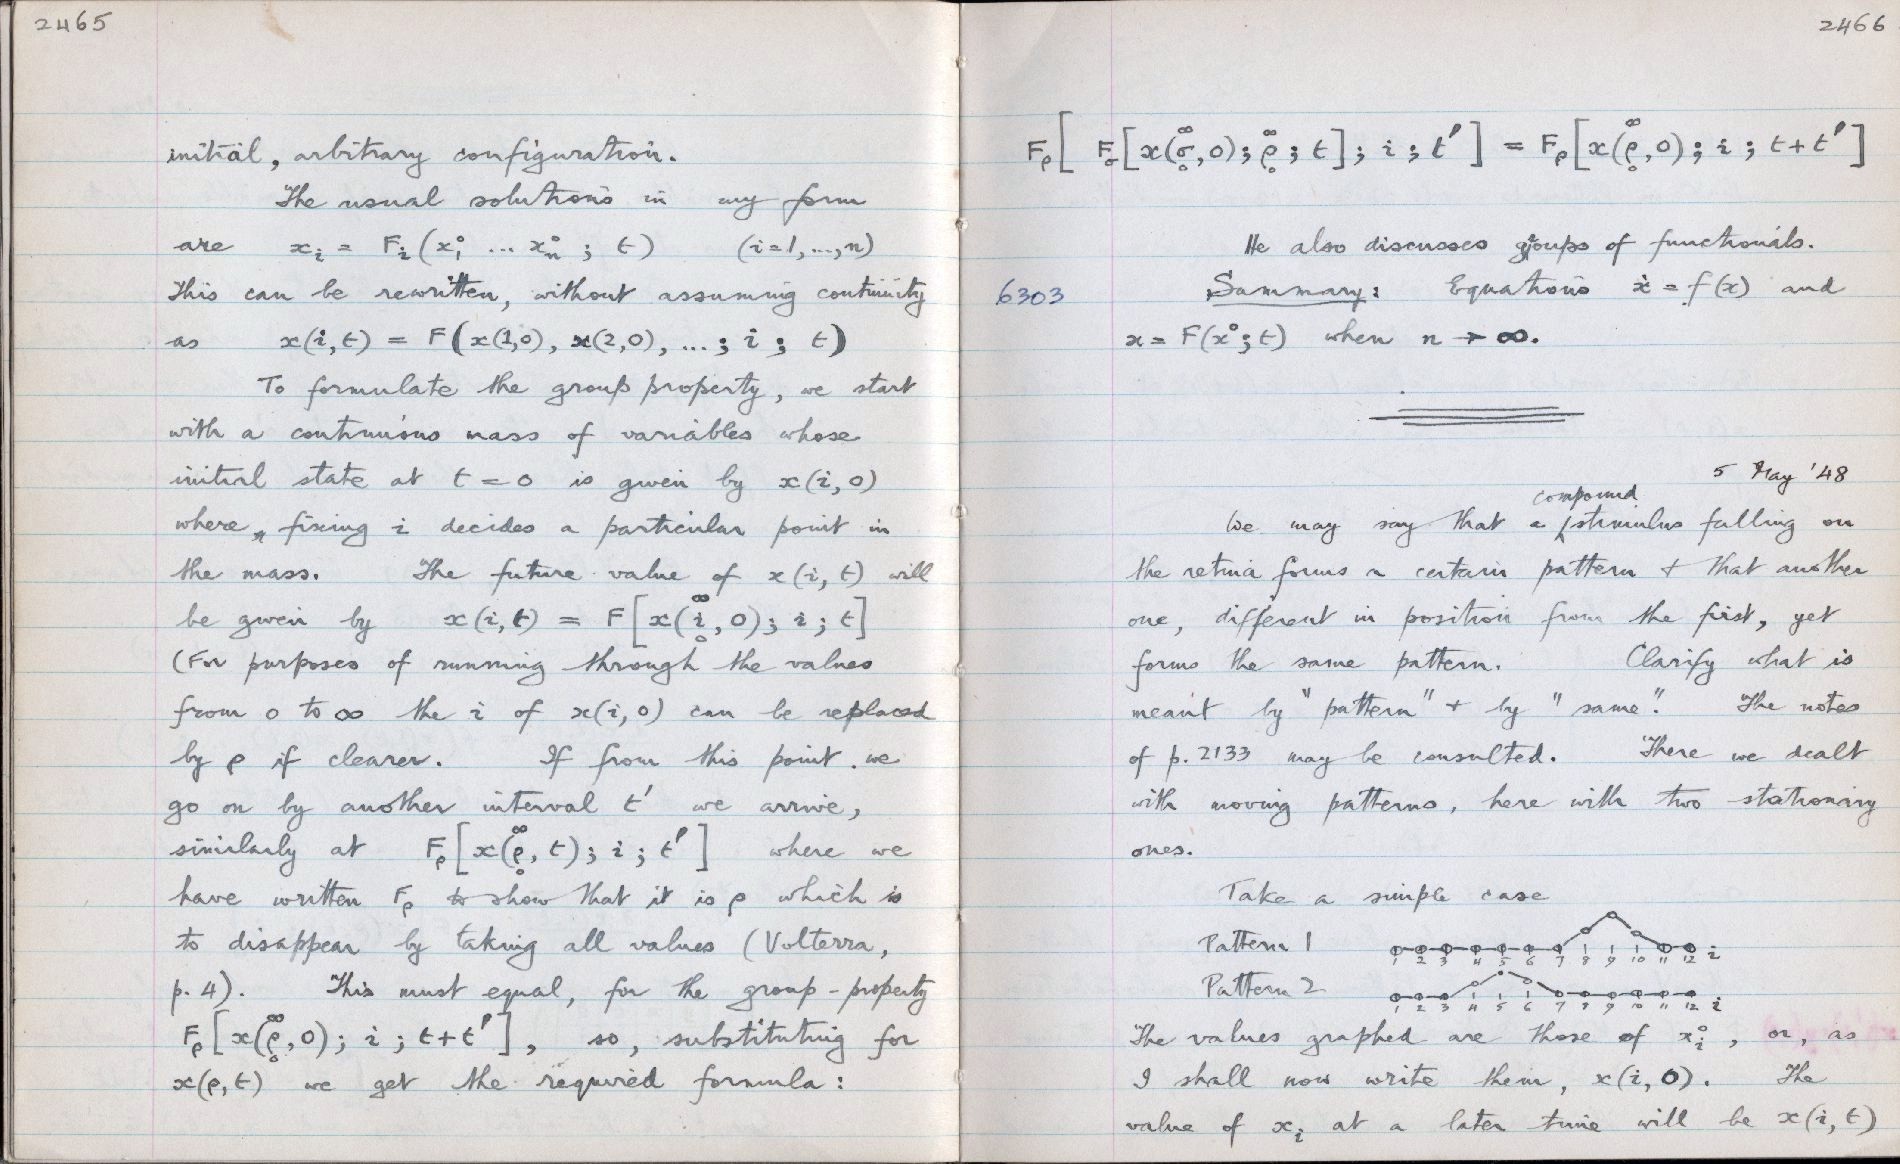 2465
initial, arbitrary configuration.
The usual solutions in my form
are xᵢ = Fᵢ(x₁° ... xₙ° ; t) (i=1,...,n)
This can be rewritten, without assuming continuity
as x(i,t) = F(x(1,0), x(2,0), ... ; i ; t)
To formulate the group property, we start
with a continuous mass of variables whose
initial state at t = 0 is given by x(i,0)
where, fixing i decides a particular point in
the mass. The future value of x(i,t) will
be given by x(i,t) = F[x(i∞₀,0); i ; t]
(For purposes of running through the values
from 0 to ∞ the i of x(i,0) can be replaced
by ρ if clearer. If from this point we
go on by another interval t' we arrive,
similarly at Fρ[x(ρ∞₀,t); i ; t'] where we
have written Fρ to show that it is ρ which is
to disappear by taking all values (Volterra,
p. 4). This must equal, for the group-property
Fρ[x(ρ∞₀,0); i ; t+t'], so, substituting for
x(ρ,t) we get the required formula:
2466
Fρ[Fσ[x(σ∞₀,0); ρ∞₀; t]; i ; t'] = Fρ[x(ρ∞₀,0); i ; t+t']
He also discusses groups of functionals.
6303 Summary: Equations ẋ = f(x) and
x = F(x°; t) when n → ∞.
5 May '48
We may say that a compound stimulus falling on
the retina forms a certain pattern + that another
one, different in position from the first, yet
forms the same pattern. Clarify what is
meant by "pattern" + by "same". The notes
of p. 2133 may be consulted. There we dealt
with moving patterns, here with two stationary
ones.
Take a simple case
Pattern 1 1 2 3 4 5 6 7 8 9 10 11 12 i
Pattern 2 1 2 3 4 5 6 7 8 9 10 11 12 i
The values graphed are those of xᵢ°, or, as
I shall now write them, x(i,0). The
value of xᵢ at a later time will be x(i,t)